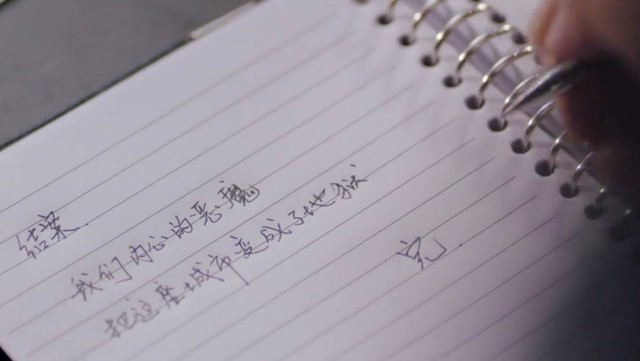 结案.
我们内心的恶魔
把这座城市变成了地狱
完.